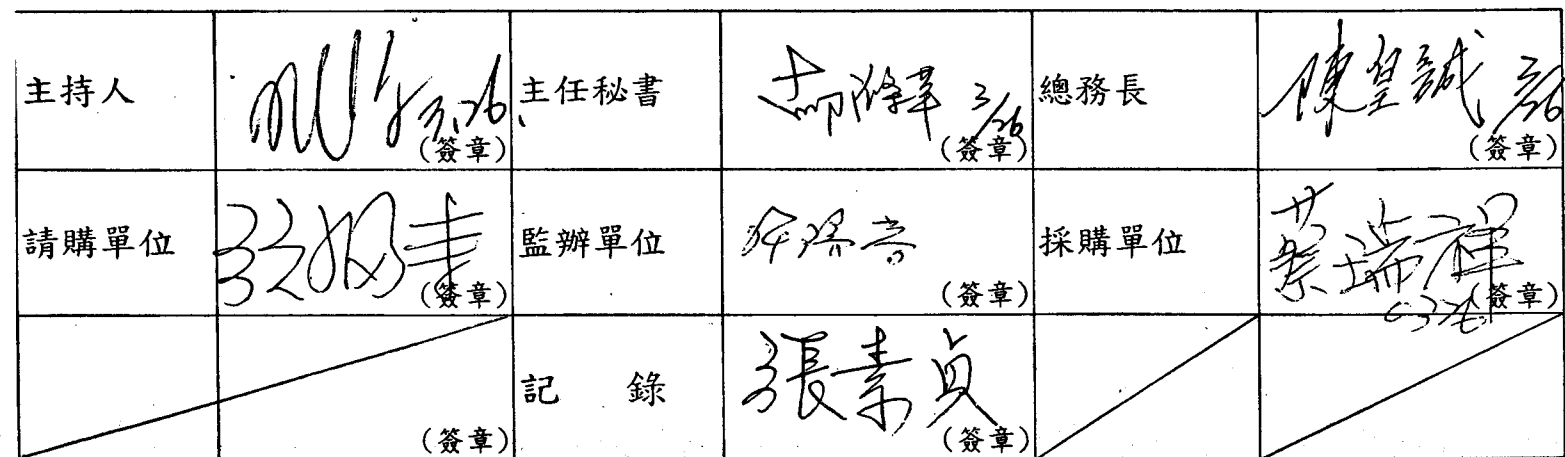 主持人 3.26. (簽章) 主任秘書 3/26 (簽章) 總務長 陳皇誠 3/26 (簽章)
請購單位 (簽章) 監辦單位 (簽章) 採購單位 蔡瑞祥 0326 (簽章)
(簽章) 記 錄 張素貞 (簽章)